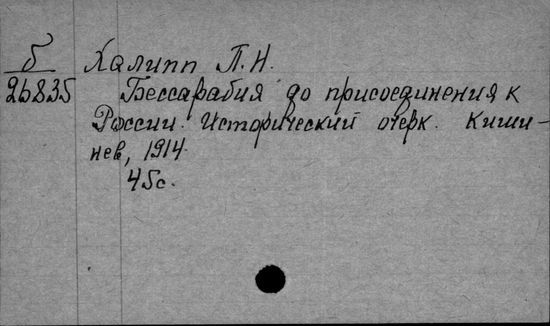 б Халипп П.Н.
26835 Бессарабия до присоединения к
России. Исторический очерк. Киши-
нев, 1914
45с.